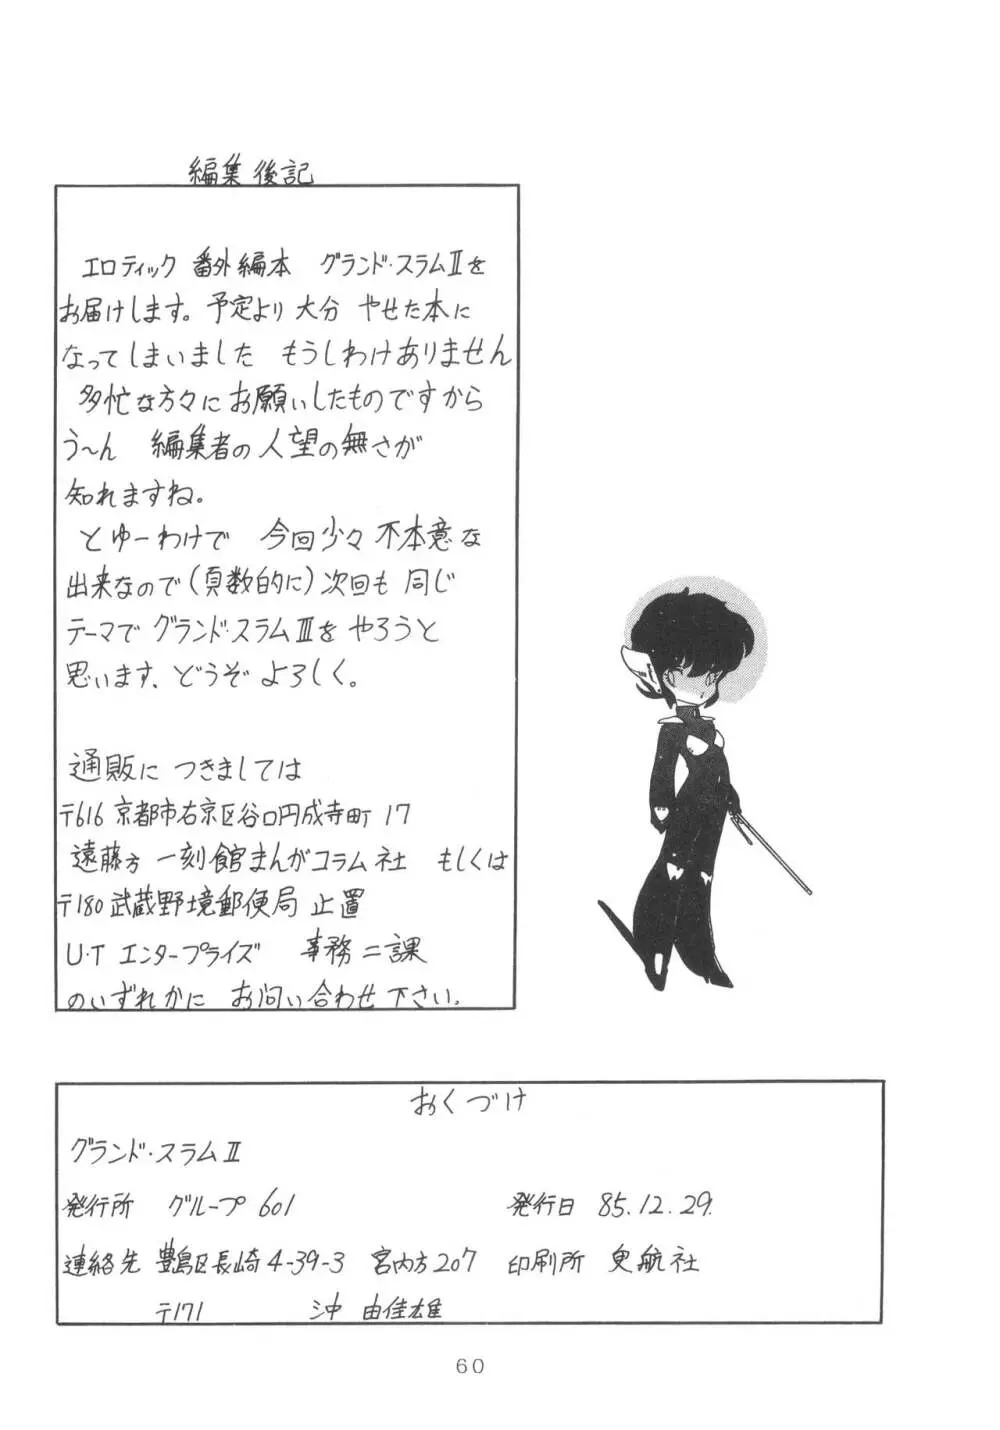 編集後記
エロティック 番外編本 グランド・スラムⅡを
お届けします。予定より 大分 やせた本に
なってしまいました もうしわけありません
多忙な方々にお願いしたものですから
う〜ん 編集者の人望の無さが
知れますね。
とゆーわけで 今回少々不本意な
出来なので(頁数的に)次回も 同じ
テーマで グランド・スラムⅢを やろうと
思います、どうぞ よろしく。
通販に つきましては
〒616 京都市右京区谷口円成寺町 17
遠藤方 一刻館まんがコラム社 もしくは
〒180 武蔵野境郵便局 止置
U・T エンタープライズ 事務二課
のいずれかに お問い合わせ下さい。
おくづけ
グランド・スラムⅡ
発行所 グループ601 発行日 85.12.29.
連絡先 豊島区長崎4-39-3 宮内方207 印刷所 曳航社
〒171 沖 由佳雄
60